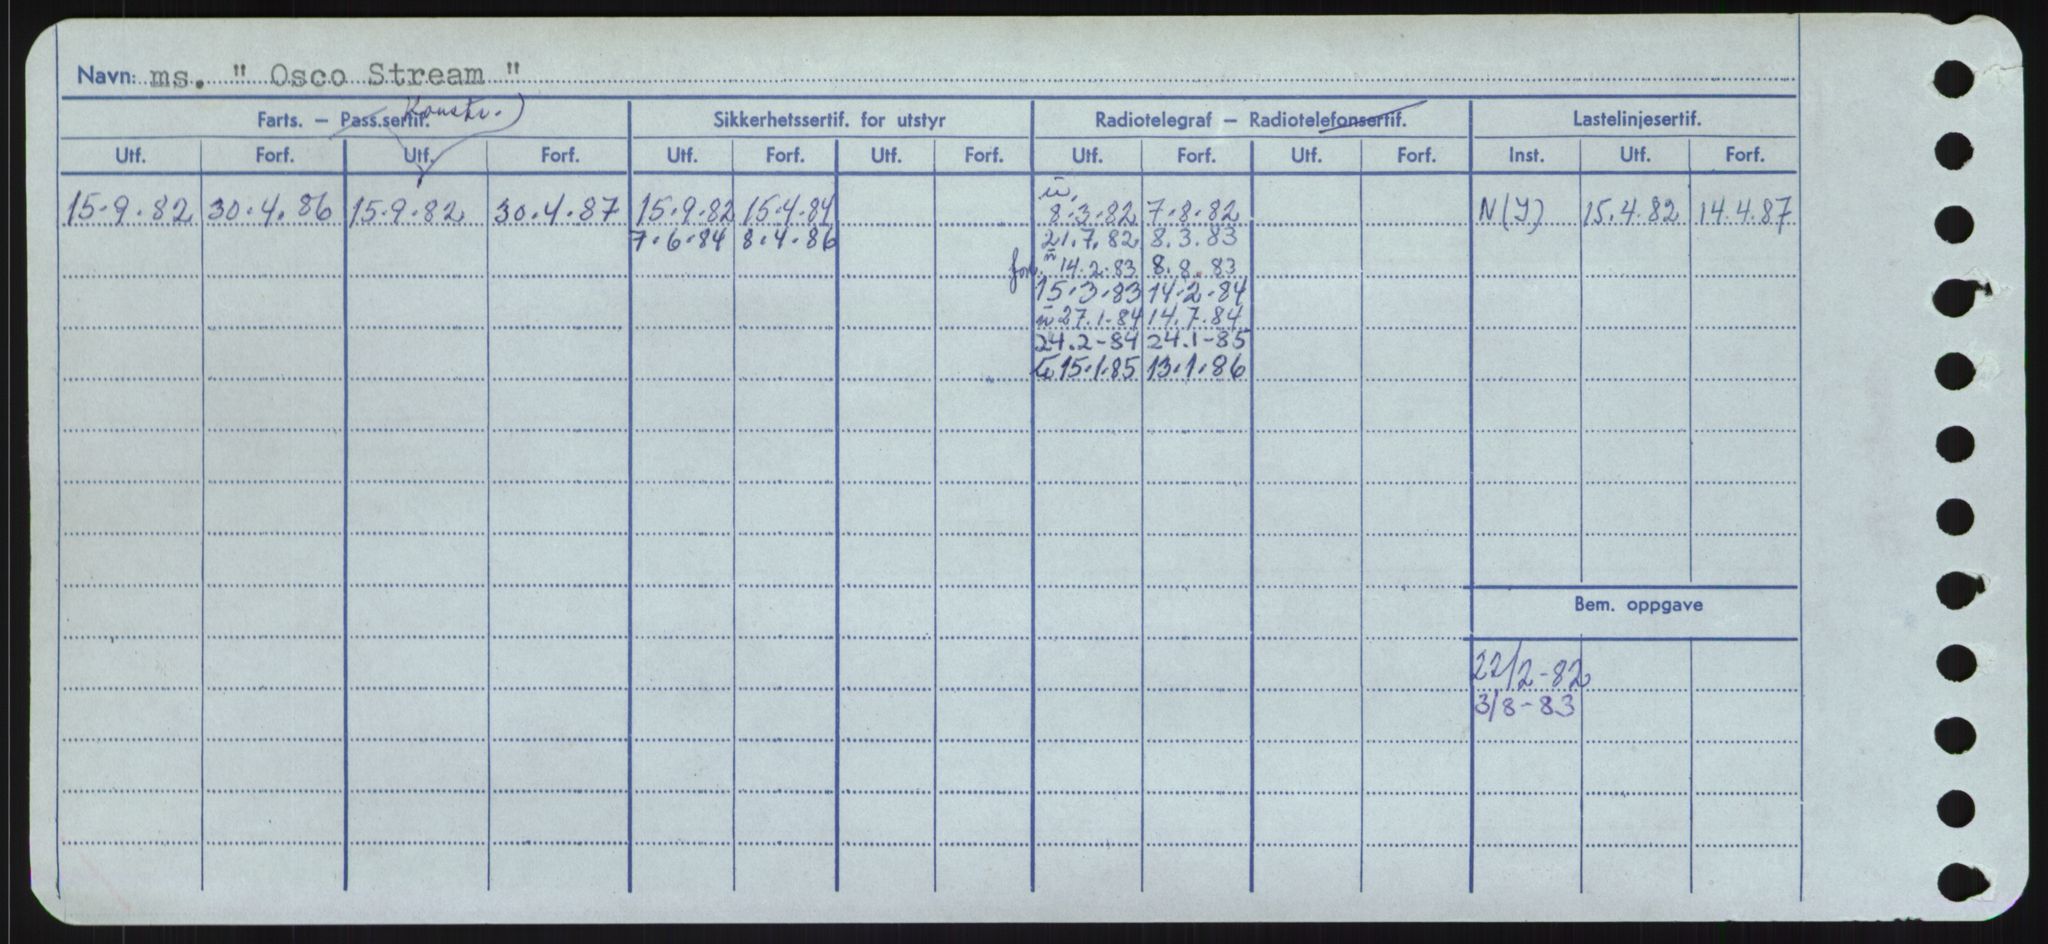 Navn: ms. " Osco Stream "
Farts. – Pass.sertif. Konstr. Sikkerhetssertif. for utstyr Radiotelegraf – Radiotelefonsertif. Lastelinjesertif.
Utf. Forf. Utf. Forf. Utf. Forf. Utf. Forf. Utf. Forf. Utf. Forf. Inst. Utf. Forf.
15.9.82 30.4.86 15.9.82 30.4.87 15.9.82 15.4.84 8.3.82 7.8.82 N(I) 15.4.82 14.4.87
7.6.84 8.4.86 21.7.82 8.3.83
14.2.83 8.8.83
15.3.83 14.2.84
27.1.84 14.7.84
24.2-84 24.1-85
15.1.85 13.1.86
Bem. oppgave
22/2-82
3/8-83